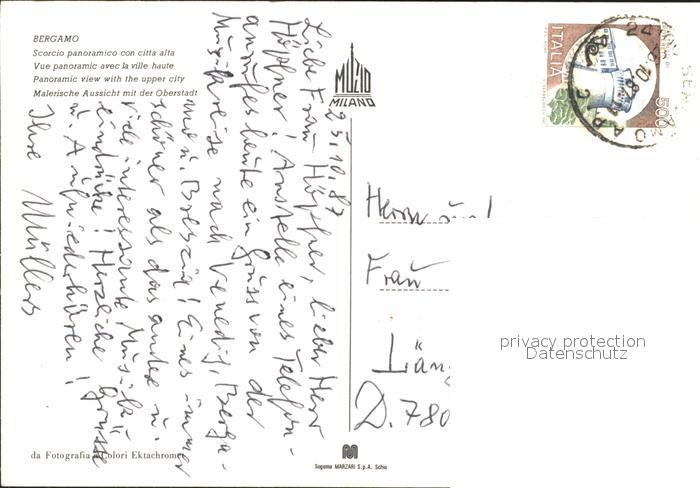 BERGAMO
Scorcio panoramico con città alta
Vue panoramic avec la ville haute
Panoramic view with the upper city
Malerische Aussicht mit der Oberstadt
MUZIO
MILANO
ITALIA
500
25.10.87
Liebe Frau Höpfner, lieber Herr
Höpfner! Anstelle eines Telefon-
anrufes heute ein Gruss von der
Musikreise nach Venedig, Berga-
mo u. Brescia! Eines immer
schöner als das andere u.
viele interessante Musik-
eindrücke! Herzliche Grüsse
u. Aufwiederhören!
Ihre Müllers
Herrn u.
Frau
Läng
D. 780
privacy protection
Datenschutz
da Fotografia a Colori Ektachrome
Sagoma MARZARI S.p.A. Schio